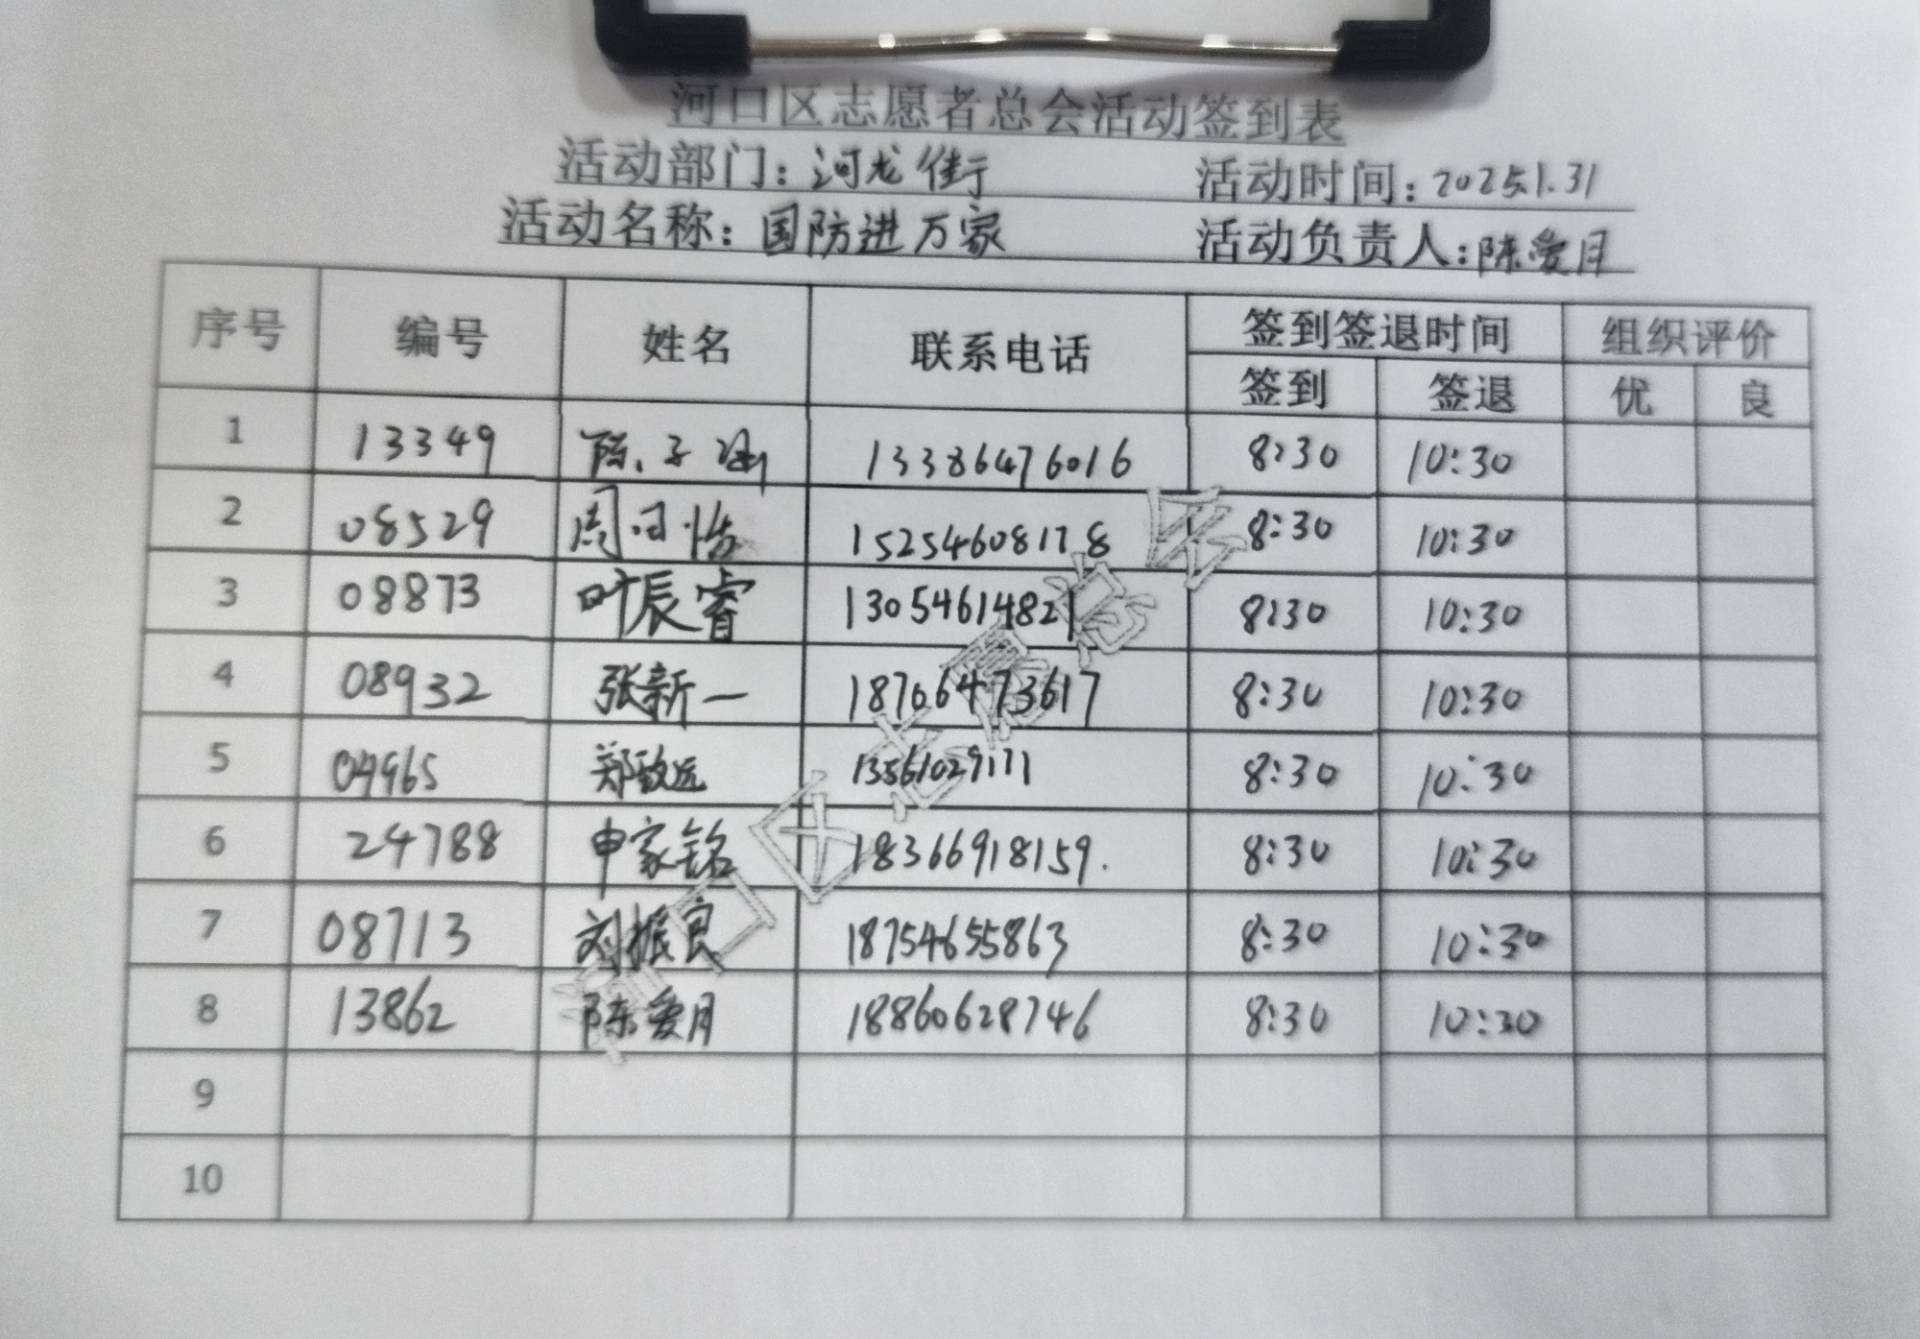 河口区志愿者总会活动签到表
活动部门：河龙街 活动时间：2025.1.31
活动名称：国防进万家 活动负责人：陈爱月
序号 编号 姓名 联系电话 签到签退时间 组织评价
签到 签退 优 良
1 13349 陈子涵 13386476016 8:30 10:30
2 08529 周 15254608178 8:30 10:30
3 08873 叶辰睿 13054614821 8:30 10:30
4 08932 张新一 18706473617 8:30 10:30
5 04965 郑致远 13561029171 8:30 10:30
6 24788 申家铭 18366918159. 8:30 10:30
7 08713 刘振良 18754655863 8:30 10:30
8 13862 陈爱月 18860628746 8:30 10:30
9
10
河口区志愿总会